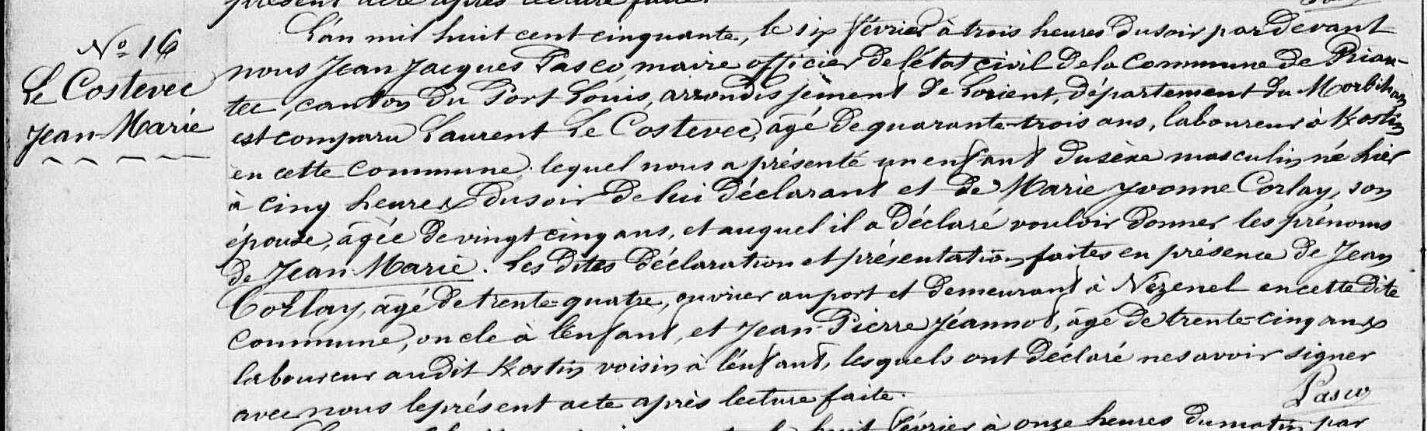 présent acte après lecture faite.
N° 16
Le Costevec
Jean-Marie
L'an mil huit cent cinquante, le six février à trois heures du soir par devant
nous Jean Jacques Pasco, maire officier de l'état civil de la commune de Rian-
tec, canton du Port Louis, arrondissement de Lorient, département du Morbihan
est comparu Laurent Le Costevec, âgé de quarante-trois ans, laboureur à Kostin
en cette commune lequel nous a présenté un enfant du sexe masculin, né hier
à cinq heures du soir de lui déclarant et de Marie Yvonne Corlay, son
épouse, âgée de vingt cinq ans, et auquel il a déclaré vouloir donner les prénoms
de Jean Marie. Les dites déclaration et présentation faites en présence de Jean
Corlay, âgé de trente-quatre, ouvrier au port et demeurant à Nézenel en cette dite
commune, oncle à l'enfant, et Jean-Pierre Jéannot, âgé de trente-cinq ans
laboureur audit Kostin voisin à l'enfant, lesquels ont déclaré ne savoir signer
avec nous le présent acte après lecture faite.
Pasco
huit février à onze heures du matin par